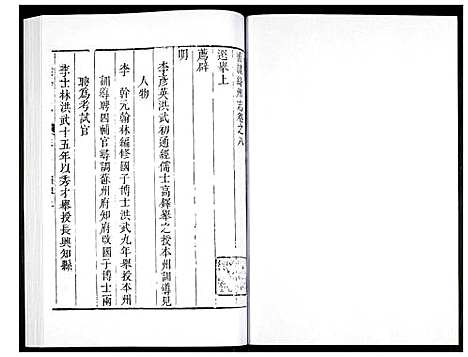 州志卷之八
選舉上
薦辟
明
李彦英洪武初通經儒士高鐸舉之授本州訓導見
人物
李 幹元翰林編修國子博士洪武九年舉授本州
訓導聘四輔官尋調蘇州府知府改國子博士兩
聘爲考試官
李士林洪武十五年以秀才舉授長興知縣